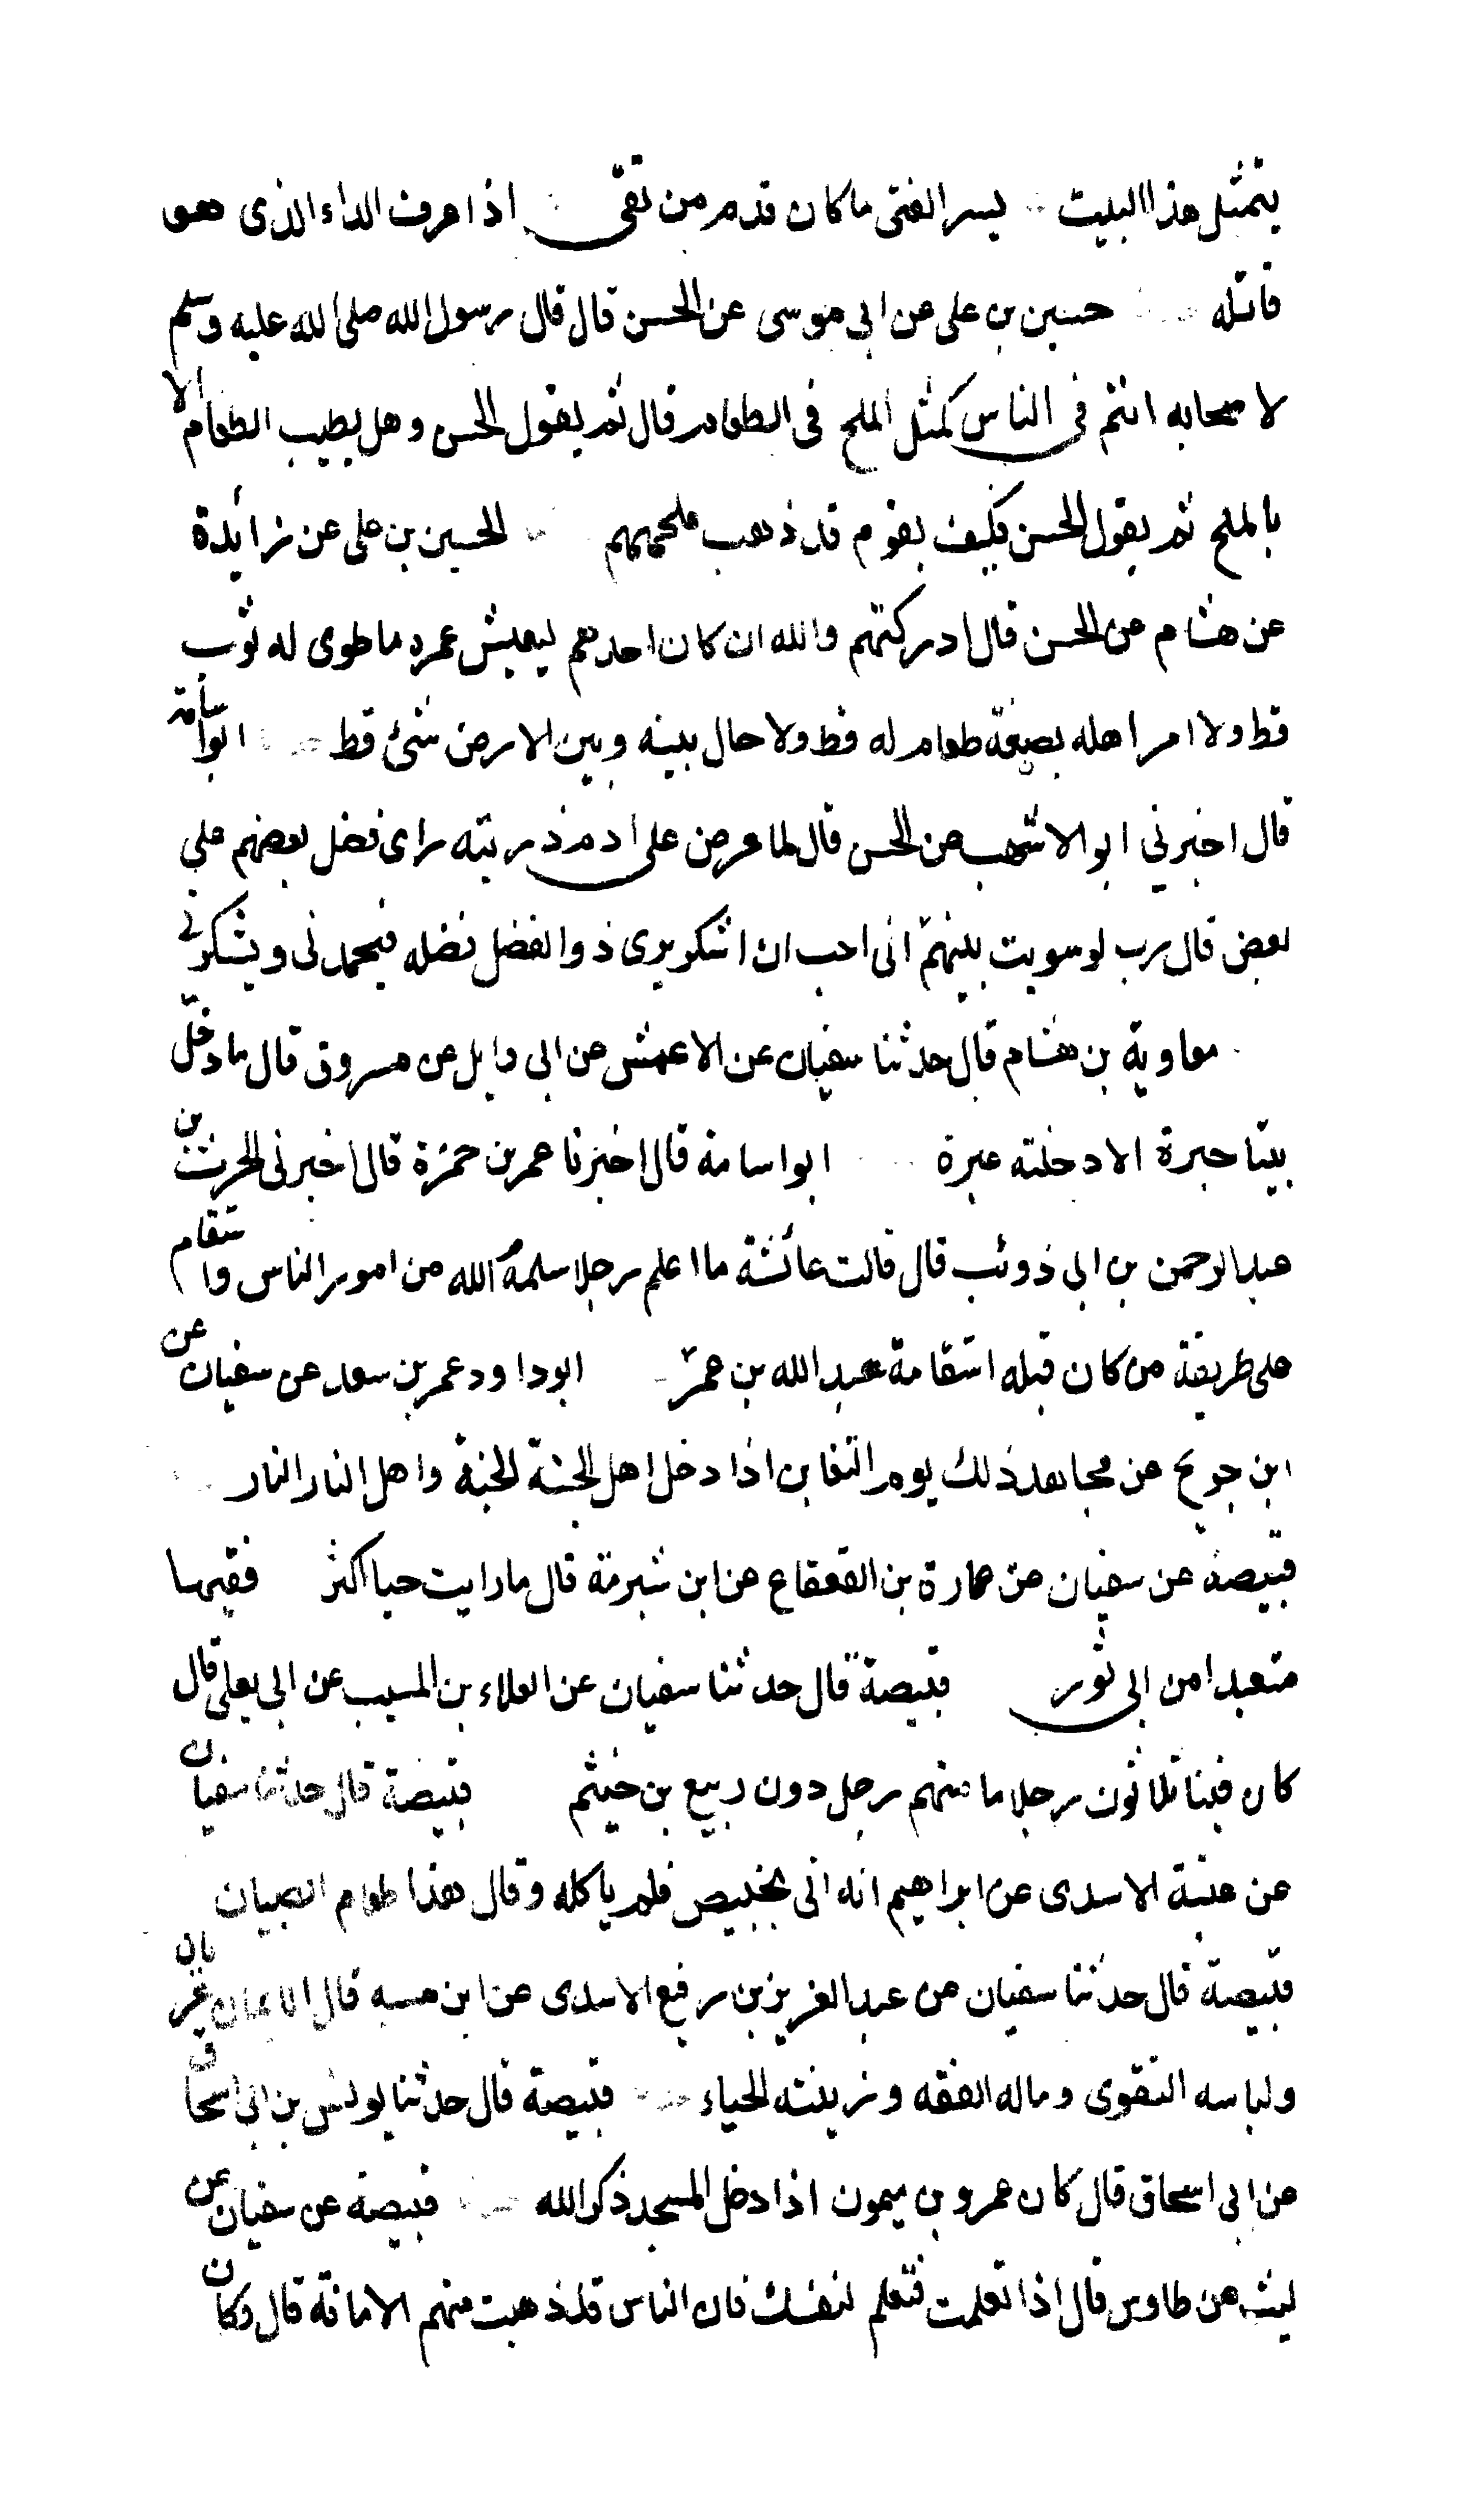 يتمثل هذا البيت يسر الفتى ما كان قدم من تقى اذا عرف الداء الذى هو
قاتله حسين بن على عن ابى موسى عن الحسن قال قال رسول الله صلى الله عليه وسلم
لاصحابه انتم فى الناس كمثل الملح فى الطعام قال ثم يقول الحسن وهل يطيب الطعام الا
بالملح ثم يقول الحسن فكيف بقوم قد ذهب ملحهم الحسين بن على عن زائدة
عن هشام عن الحسن قال ادركتهم والله ان كان احدهم ليعيش عمره ما طوى له ثوب
قط ولا امر اهله بصنعة طعام له قط ولا حال بينه وبين الارض شئ قط ابو اسامة
قال اخبرني ابو الاشهب عن الحسن قال لما عرض على ادم ذريته راى فضل بعضهم على
بعض قال رب لو سويت بينهم انى احب ان اشكر يرى ذو الفضل فضله فيحمدنى ويشكرنى
معاوية بن هشام قال حدثنا سفيان عن الاعمش عن ابى وايل عن مسروق قال ما دخل
بيتا حبرة الا دخلته عبرة ابو اسامة قال اخبرنا عمر بن حمزة قال اخبرنى الحرث بن
عبد الرحمن بن ابى ذوئب قال قالت عائشة ما اعلم رجلا سلمه الله من امور الناس واستقام
على طريقة من كان قبله استقامة عبد الله بن عمر ابو داود عمر بن سعد عن سفيان عن
ابن جريج عن مجاهد ذلك يوم التغابن اذا دخل اهل الجنة الجنة واهل النار النار
قبيصة عن سفيان عن عمارة بن القعقاع عن ابن شبرمة قال ما رايت حيا اكثر فقيها
متعبدا من ابى ثور قبيصة قال حدثنا سفيان عن العلاء بن المسيب عن ابى يعلى قال
كان فينا ثلاثون رجلا ما منهم رجل دون ربيع بن خيثم قبيصة قال حدثنا سفيان
عن عتبة الاسدى عن ابراهيم انه اتى بخبيص فلم ياكله وقال هذا طعام الصبيان
قبيصة قال حدثنا سفيان عن عبد العزيز بن رفيع الاسدى عن ابن منبه قال الايمان عريان
ولباسه التقوى وماله الفقه وزينته الحياء قبيصة قال حدثنا يونس بن ابى اسحاق
عن ابى اسحاق قال كان عمرو بن ميمون اذا دخل المسجد ذكر الله قبيصة عن سفيان عن
ليث عن طاوس قال اذا تعلمت فتعلم لنفسك فان الناس قد ذهبت منهم الامانة قال وكان